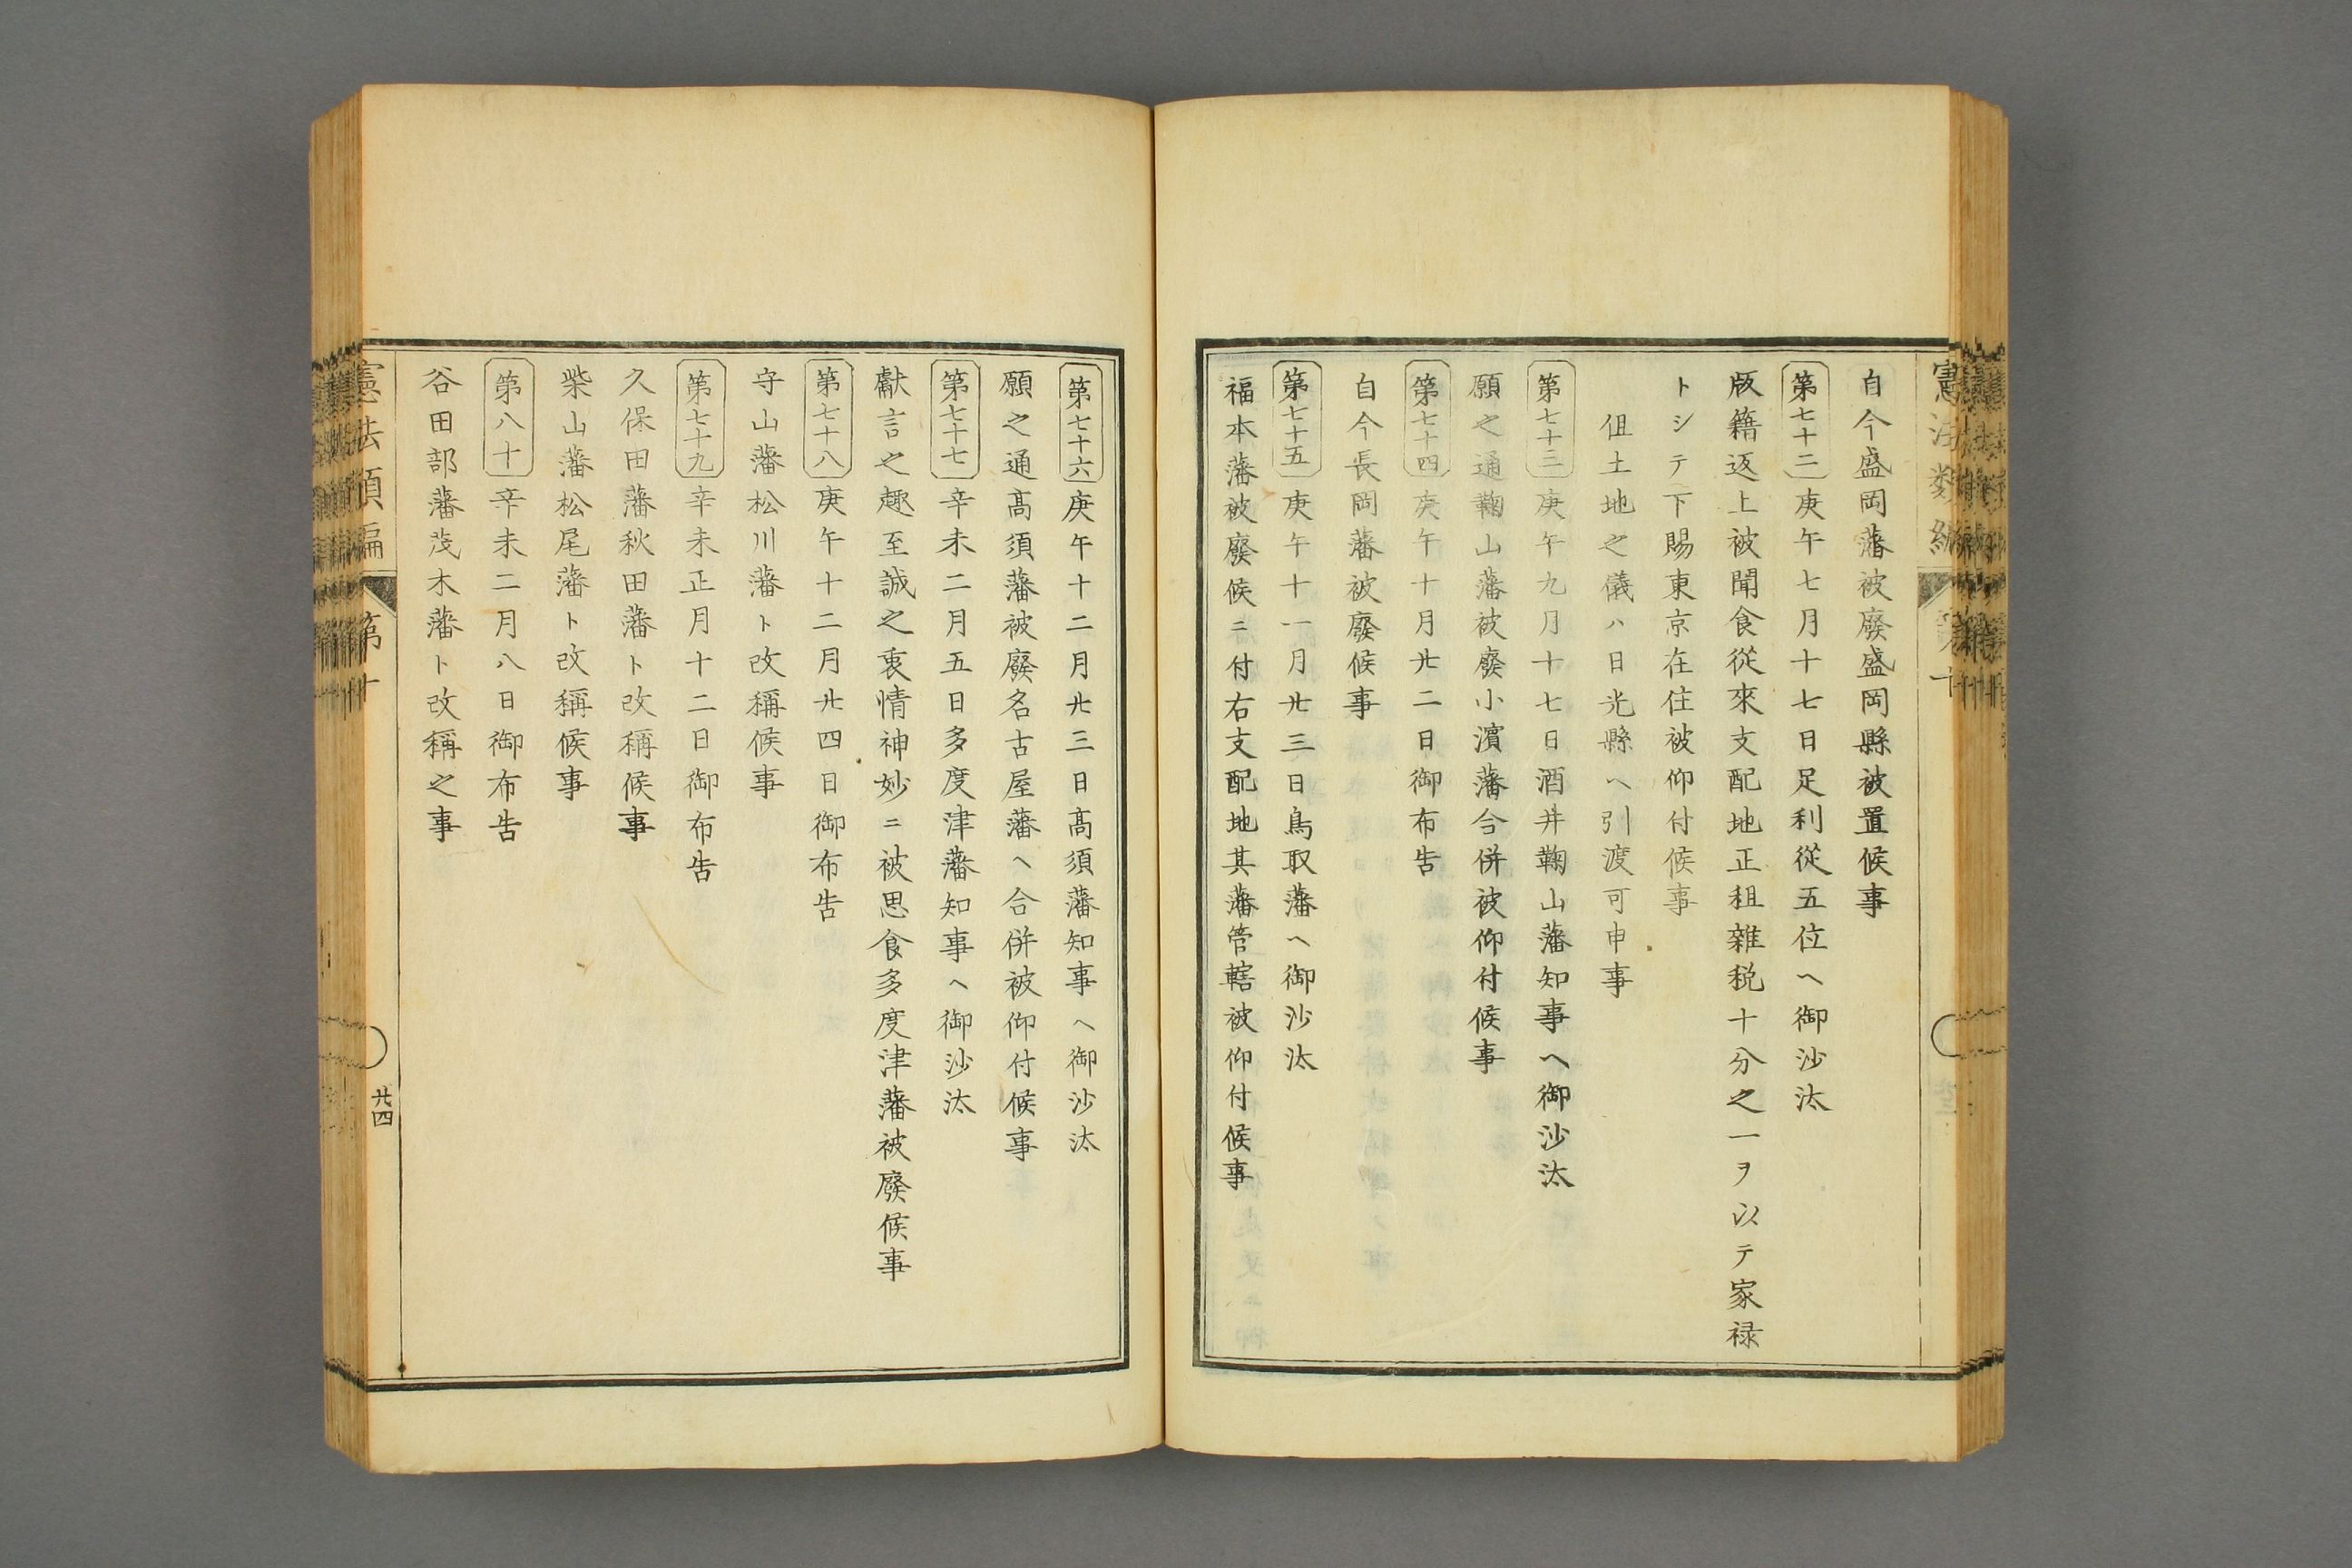 自今盛岡藩被廢盛岡縣被置候事
第七十二庚午七月十七日足利從五位ヘ御沙汰
版籍返上被聞食從來支配地正租雜稅十分之一ヲ以テ家禄
トシテ下賜東京在住被仰付候事
但土地之儀ハ日光縣ヘ引渡可申事
第七十三庚午九月十七日酒井鞠山藩知事ヘ御沙汰
願之通鞠山藩被廢小濱藩合併被仰付候事
第七十四庚午十月廿二日御布告
自今長岡藩被廢候事
第七十五庚午十一月廿三日鳥取藩ヘ御沙汰
福本藩被廢候ニ付右支配地其藩管轄被仰付候事
第七十六庚午十二月廿三日高須藩知事ヘ御沙汰
願之通高須藩被廢名古屋藩ヘ合併被仰付候事
第七十七辛未二月五日多度津藩知事ヘ御沙汰
獻言之趣至誠之衷情神妙ニ被思食多度津藩被廢候事
第七十八庚午十二月廿四日御布告
守山藩松川藩ト改稱候事
第七十九辛未正月十二日御布告
久保田藩秋田藩ト改稱候事
柴山藩松尾藩ト改稱候事
第八十辛未二月八日御布告
谷田部藩茂木藩ト改稱之事
憲法類編 第十
廿四